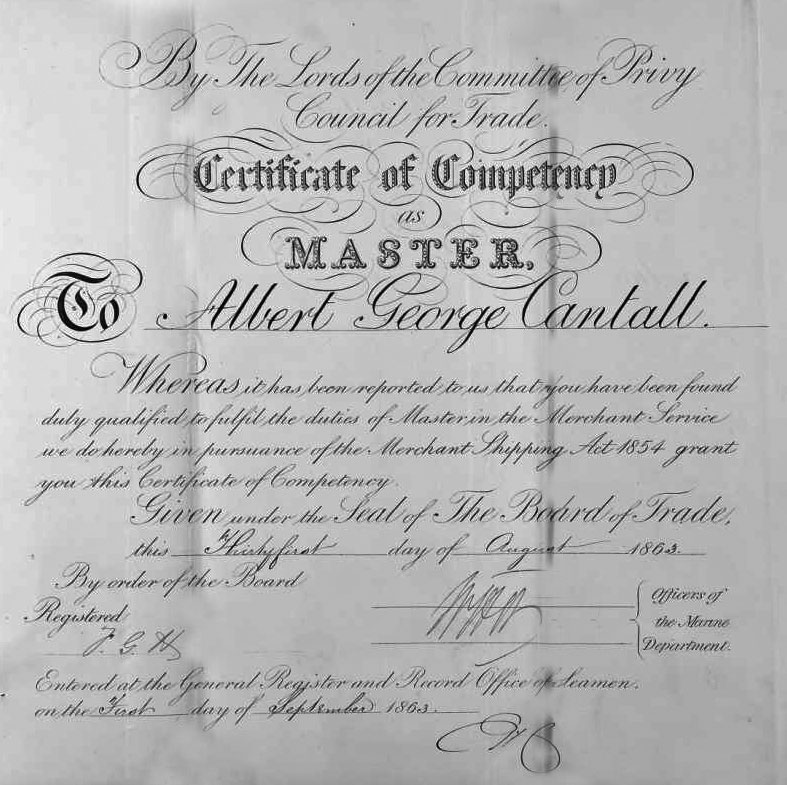 By The Lords of the Committee of Privy
Council for Trade.
Certificate of Competency
as
MASTER,
To Albert George Cantall.
Whereas it has been reported to us that you have been found
duly qualified to fulfil the duties of Master in the Merchant Service
we do hereby in pursuance of the Merchant Shipping Act 1854 grant
you this Certificate of Competency.
Given under the Seal of The Board of Trade,
this Thirtyfirst day of August 1863.
By order of the Board
Registered
Officers of
the Marine
Department.
Entered at the General Register and Record Office of Seamen.
on the First day of September 1863.